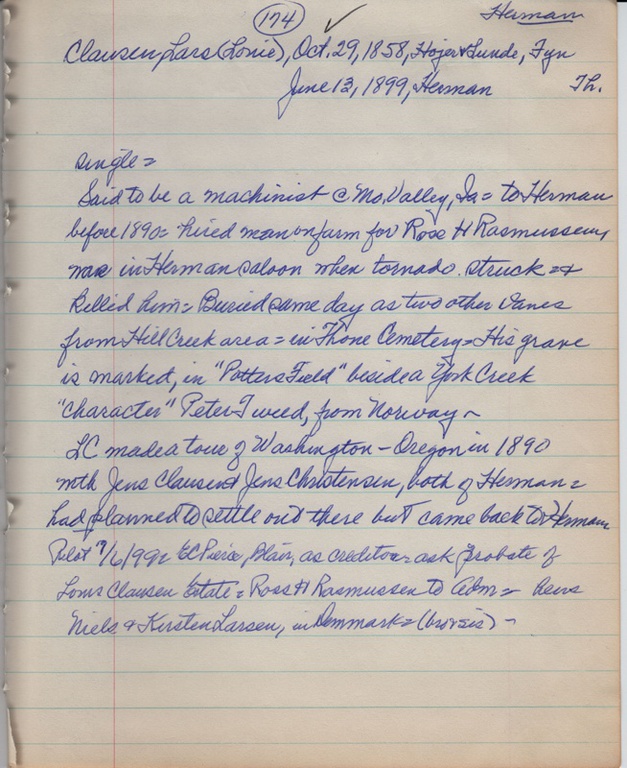 174 Herman
Clausen, Lars (Louie), Oct. 29, 1858, Hojer Lunde, Fyn
June 13, 1899, Herman Th.
single =
Said to be a machinist @ Mo. Valley, Ia = to Herman
before 1890 = hired man on farm for Ross H Rasmussen,
was in Herman saloon when tornado struck = &
killed him = Buried same day as two other Danes
from Hill Creek area = in Thone Cemetery = His grave
is marked, in "Potters Field" beside a York Creek
"character" Peter Tweed, from Norway ~
LC made a tour of Washington - Oregon in 1890
with Jens Clausen & Jens Christensen, both of Herman =
had planned to settle out there but came back to Herman
Pilot 7/6/99 = EC Pierce, Blair, as creditor ask probate of
Louis Clausen Estate = Ross H Rasmussen to Adm =
Niels & Kirsten Larsen, in Denmark = (bro & sis) -